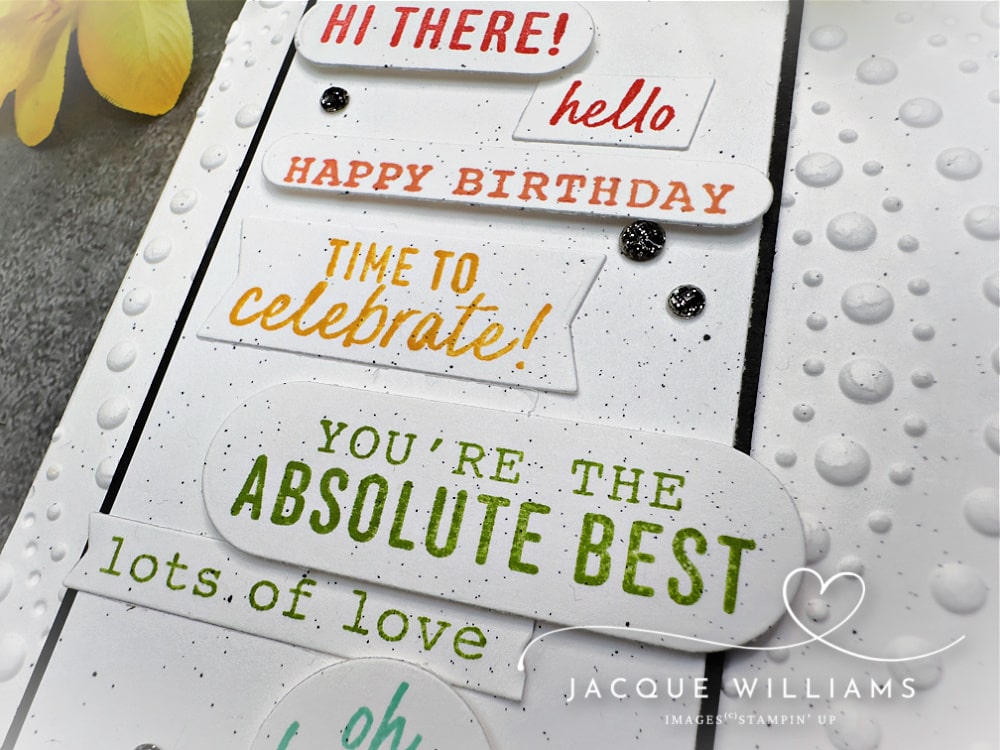 HI THERE!
hello
HAPPY BIRTHDAY
TIME TO
celebrate!
YOU'RE THE
ABSOLUTE BEST
lots of love
oh
JACQUE WILLIAMS
IMAGES(C)STAMPIN' UP